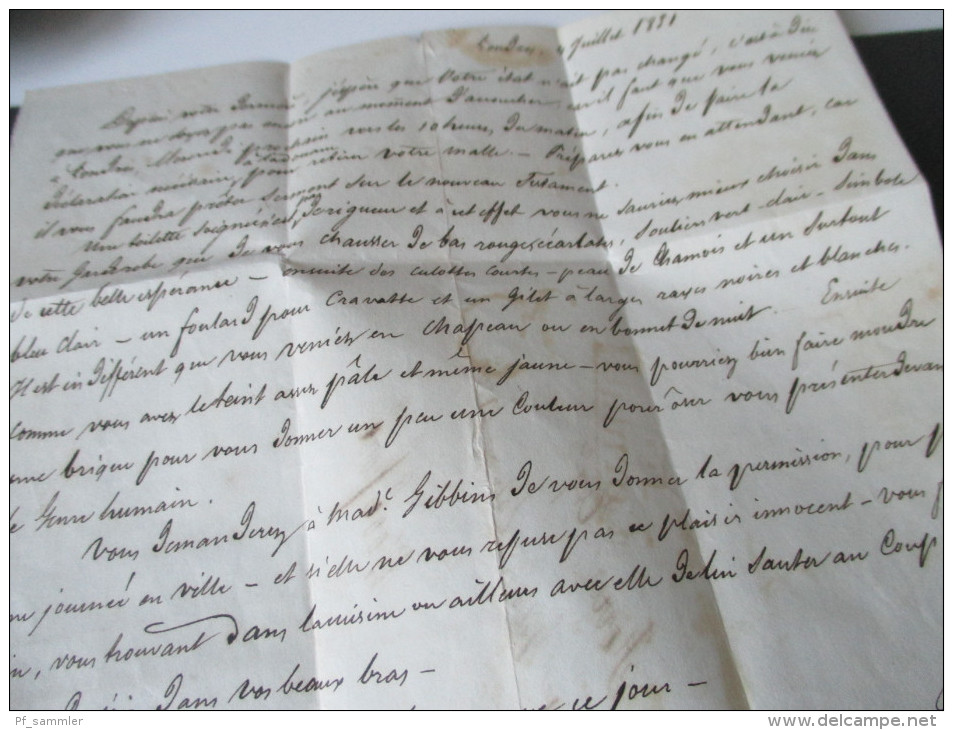 Londres, 4 Juillet 1831
votre j'espère que Votre état n'ait pas changé, c'est à dire
que vous ne soyez pas encore au moment d'accoucher, car il faut que vous veniez
à Londres, prochain vers les 10 heures du matin, afin de faire la
Déclaration nécessaire, pour retirer votre malle. – Préparez vous en attendant, car
il vous faudra prêter serment sur le nouveau Testament.
Une toilette soignée est de rigueur et à cet effet vous ne sauriez mieux choisir dans
votre garderobe que de vous chausser de bas rouges écarlates, soutien vert-clair – Simbole
de cette belle espérance – ensuite des culottes courtes – peau de Chamois et un Surtout
bleu clair – un foulard pour Cravatte et un Gilet à larges rayes noires et blanches.
Il est indifférent que vous veniez en chapeau ou en bonnet de nuit. Ensuite
comme vous avez le teint assez pâle et même jaune – vous pourriez bien faire moudre
une brique pour vous donner un peu une Couleur pour ôser vous présenter devan
le Genre humain.
Vous demanderez à Mad.e Gibbins de vous donner la permission, pour p
une journée en ville – et si elle ne vous refuse pas ce plaisir innocent – vous p
, vous trouvant dans la cuisine ou ailleurs avec elle de lui Sauter au Coup
dans vos beaux bras –
ce jour –
Pf_sammler
www.delcampe.net